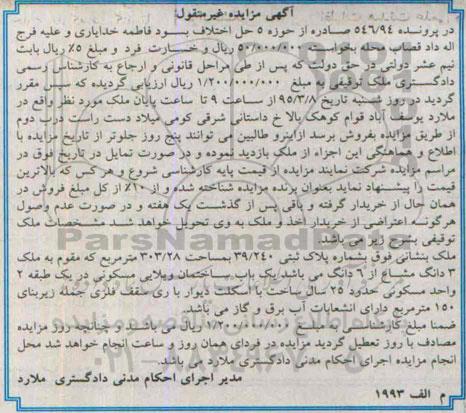 آگهی مزایده غیرمنقول
در پرونده ۵۴۶/۹۴ صادره از حوزه ۵ حل اختلاف بسود فاطمه خدایاری و علیه فرج
اله داد قصاب محله بخواسته ۵۰/۰۰۰/۰۰۰ ریال و خسارت فرد و مبلغ ۵٪ ریال بابت
نیم عشر دولتی در حق دولت که پس از طی مراحل قانونی و ارجاع به کارشناس رسمی
دادگستری ملک توقیفی به مبلغ ۱/۲۰۰/۰۰۰/۰۰۰ ریال ارزیابی گردیده که سپس مقرر
گردید در روز شنبه تاریخ ۹۵/۳/۸ از ساعت ۹ تا ساعت پایان ملک مورد نظر واقع در
ملارد یوسف آباد قوام کوهک بالا خ داستانی شرقی کومی میلاد دست راست درب دوم
از طریق مزایده بفروش برسد ازاینرو طالبین می توانند پنج روز جلوتر از تاریخ مزایده با
اطلاع و هماهنگی این اجراء از ملک بازدید نموده و در صورت تمایل در تاریخ فوق در
مراسم مزایده شرکت نمایند مزایده از قیمت پایه کارشناسی شروع و هر کس که بالاترین
قیمت را پیشنهاد نماید بعنوان برنده مزایده شناخته شده و از ۱۰٪ از کل مبلغ فروش در
همان حال از خریدار گرفته و باقی پس از گذشت یک هفته و در صورت عدم وصول
هرگونه اعتراضی از خریدار اخذ و ملک به وی تحویل خواهد شد مشخصات ملک
توقیفی بشرح زیر می باشد
ملک بنشانی فوق بشماره پلاک ثبتی ۳۹/۲۴۰ بمساحت ۳۰۳/۲۸ مترمربع که مقوم به ملک
۳ دانگ مشاع از ۶ دانگ می باشد/یک باب ساختمان ویلایی مسکونی در یک طبقه ۲
واحد مسکونی حدود ۲۵ سال ساخت با اسکلت دیوار با ری سقف فلزی جمله زیربنای
۱۵۰ مترمربع دارای انشعابات آب برق و گاز می باشد.
ضمنا مبلغ کارشناسی شده مبلغ ۱/۲۰۰/۰۰۰/۰۰۰ ریال می باشد. و چنانچه روز مزایده
مصادف با روز تعطیل گردید مزایده در فردای همان روز و ساعت انجام خواهد شد محل
انجام مزایده اجرای احکام مدنی دادگستری ملارد می باشد.
مدیر اجرای احکام مدنی دادگستری ملارد
م الف ۱۹۹۳
ParsNamadData